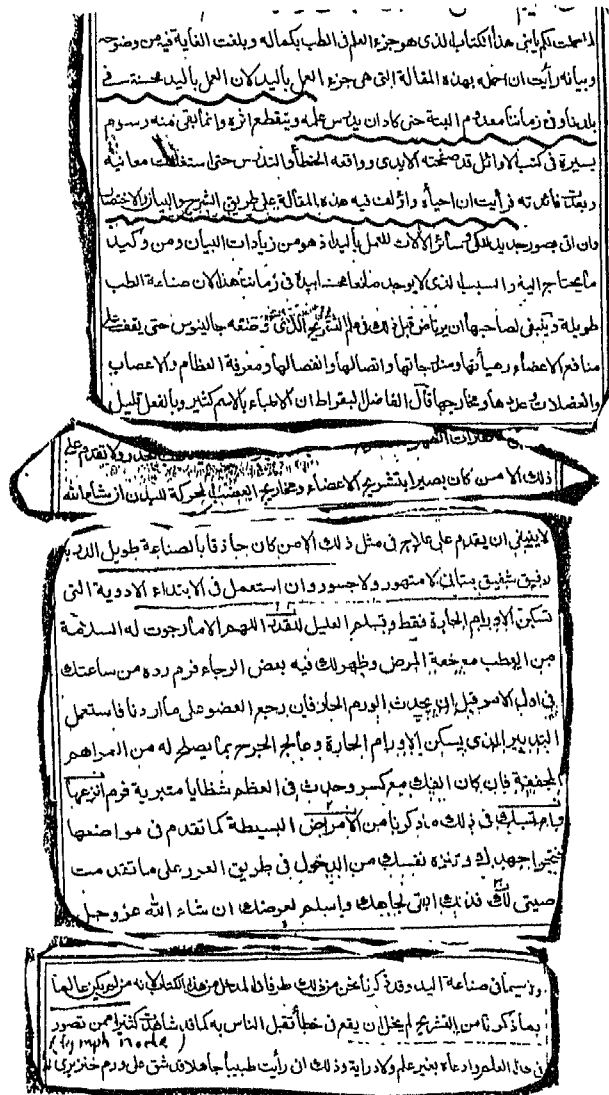 لما كملت لكم يا بني هذا الكتاب الذي هو جزء العلم في الطب بكماله وبلغت الغاية فيه من وضوحه
وبيانه رأيت ان اكمله بهذه المقالة التي هي جزء العمل باليد لان العمل باليد محسنة في
بلدنا وفي زماننا معدوم البتة حتى كاد ان يدرس علمه وينقطع اثره وانما بقى منه رسوم
يسيرة في كتب الاوائل قد صحفته الايدى وواقعه الخطأ والتدس حتى استغلقت معانيه
وبعدت فائدته فرأيت ان احياه واؤلف فيه هذه المقالة على طريق الشرح والبيان والاختصار
وان اتى بصور حديد الكي وسائر الآلات للعمل باليد اذ هو من زيادات البيان ومن وكيد
ما يحتاج اليه والسبب الذى لا يوجد صانعا محسنا بيده في زماننا هذا لان صناعة الطب
طويلة وينبغى لصاحبها ان يرتاض قبل ذلك في علم التشريح الذى وضعه جالينوس حتى يقف على
منافع الاعضاء وهيأتها ومزاجاتها واتصالها وانفصالها ومعرفة العظام والاعصاب
والعضلات وعددها ومخارجها قال الفاضل البقراط ان الاطباء بالاسم كثير وبالفعل قليل
ولا تقدم على
ذلك الا من كان بصيرا بتشريح الاعضاء ومخاريج العصب المحركة للبدن ان شاء الله
لا ينبغي ان يقدم على علاج في مثل ذلك الا من كان حاذقا بالصناعة طويل الدربة
رفيق شفيق بتأنى لا متهور ولا جسور وان استعمل في الابتداء الادوية التى
تسكن الاورام الحارة فقط وتسلم العليل للقدر اللهم الا ما رجوت له السلامة
من العطب مع خفة المرض وظهر لك فيه بعض الرجاء فرم رده من ساعتك
في اول الامر قبل ان يحدث الورم الحار فان رجع العضو على ما اردنا فاستعمل
التدبير الذى يسكن الاورام الحارة وعالج الجرح بما يصلح له من المراهم
المجففة فان كان الفك مع كسر وحدث في العظم شظايا متبرية فرم انزعها
وامتثل في ذلك ما ذكرنا من الامراض البسيطة كما تقدم في مواضعها
جهدك وتنزه نفسك من الدخول في طريق الغرر على ما تقدمت
وصيتى لك فذلك ابقى لجاهك واسلم لعرضك ان شاء الله عز وجل
ولا سيما في صناعة اليد وقد ذكرنا نحن من ذلك طرفا في المدخل من هذا الكتاب لانه من لم يكن عالما
بما ذكرنا من التشريح لم يخل ان يقع في خطأ تقبل الناس به كما قد شاهدت كثيرا ممن تصور
(lymph node)
في هذا العلم وادعاه بغير علم ولا دراية وذلك ان رأيت طبيبا جاهلا قد شق على ورم خنزيرى